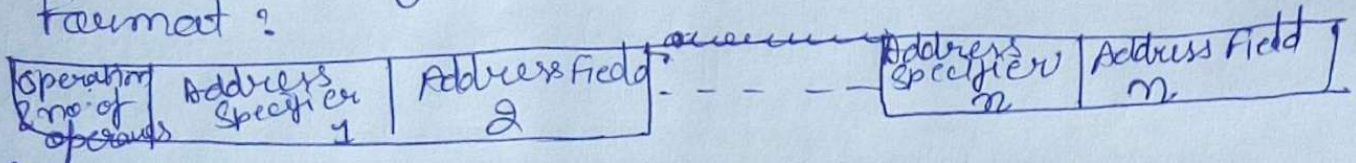 Format :
Operation & no. of operands | Address Specifier 1 | Address Field 2 | - - - - - | Address Specifier n | Address Field n